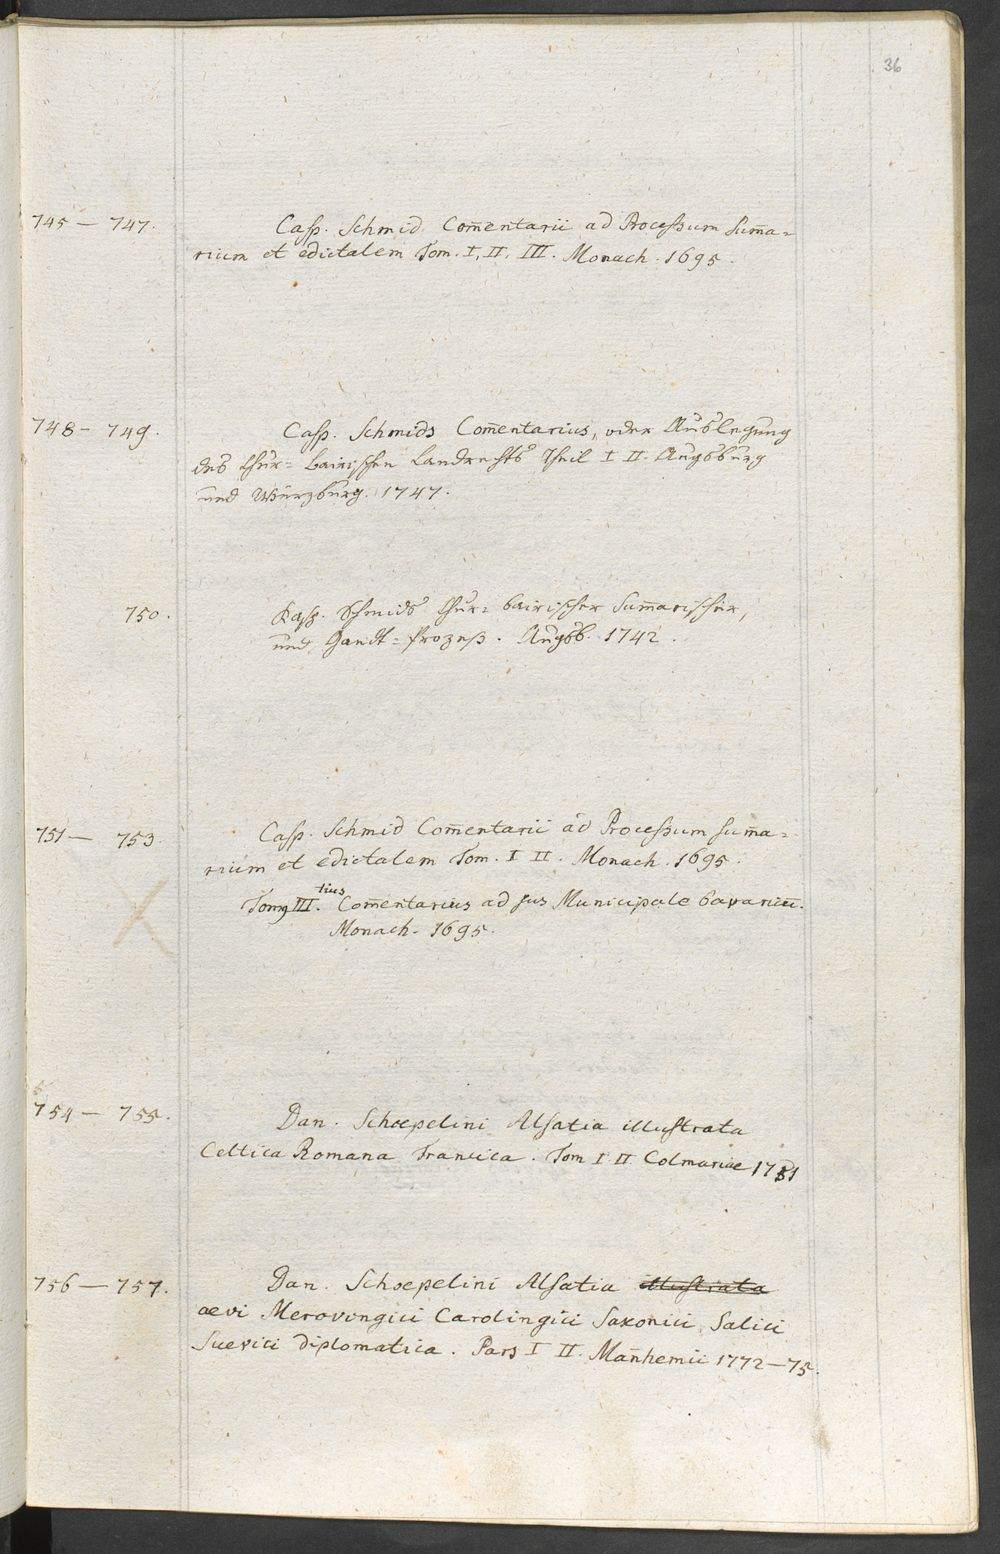 36
745 — 747. Casp. Schmid Com̄entarii ad Processum Sum̄a=
rium et edictalem Tom. I, II, III. Monach. 1695.
748 — 749. Casp. Schmids Com̄entarius, oder Auslegung
des Chur= bairischen Landrechts Theil I II. Augsburg
und Würzburg. 1747.
750. Kasp. Schmids Chur= bairischer Sum̄arischer,
und Gandt= Prozeß. Augsb. 1742.
751 — 753. Casp. Schmid Com̄entarii ad Processum Sum̄a=
rium et edictalem Tom. I II. Monach. 1695.
Tomus III.tius Com̄entarius ad jus Municipale bavaricū.
Monach. 1695.
754 — 755. Dan. Schoepelini Alsatia illustrata
Celtica Romana Francica. Tom I II Colmariae 1751
756 — 757. Dan. Schoepelini Alsatia illustrata
aevi Merovingici Carolingici Saxonici Salici
Suevici diplomatica. Pars I II. Man̄hemii 1772—75.